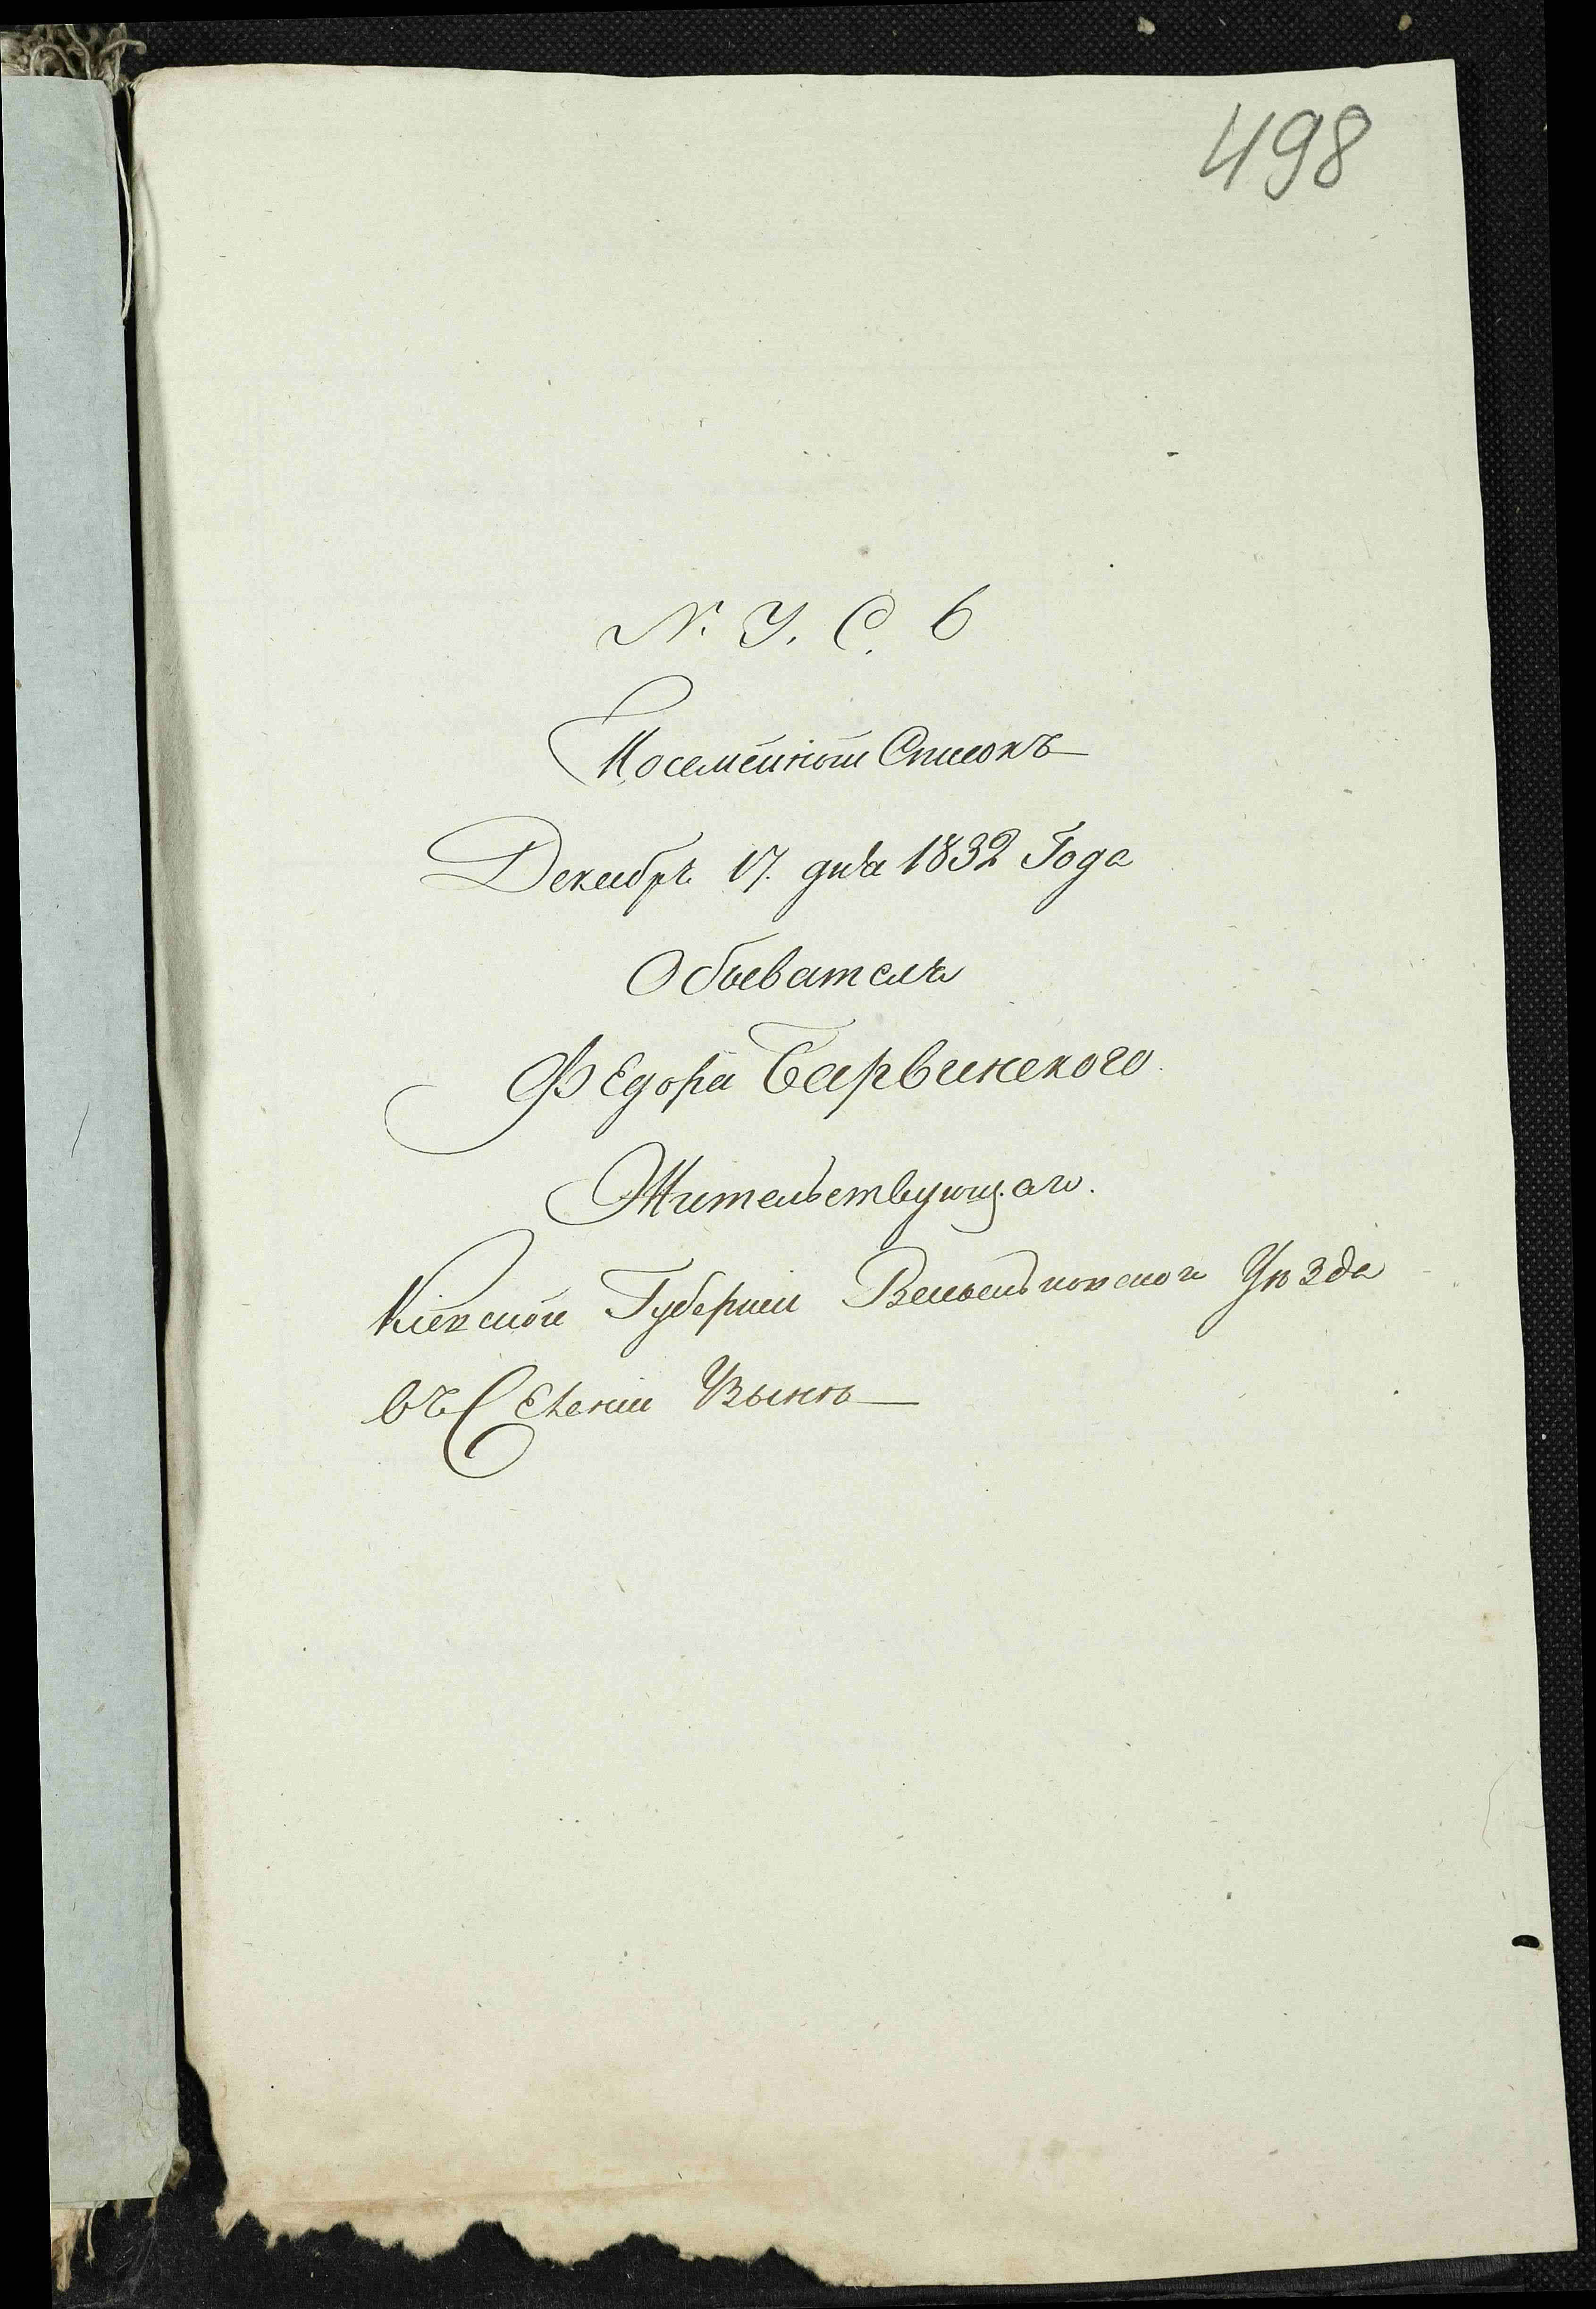 498
N. У. С. 6
Посемейный Списокъ
Декабря 17. дня 1832 Года
Обывателя
Федора Барвинского
Жительствующаго.
Кіевской Губерніи Васильковскаго Уѣзда
въ Селеніи Узынѣ